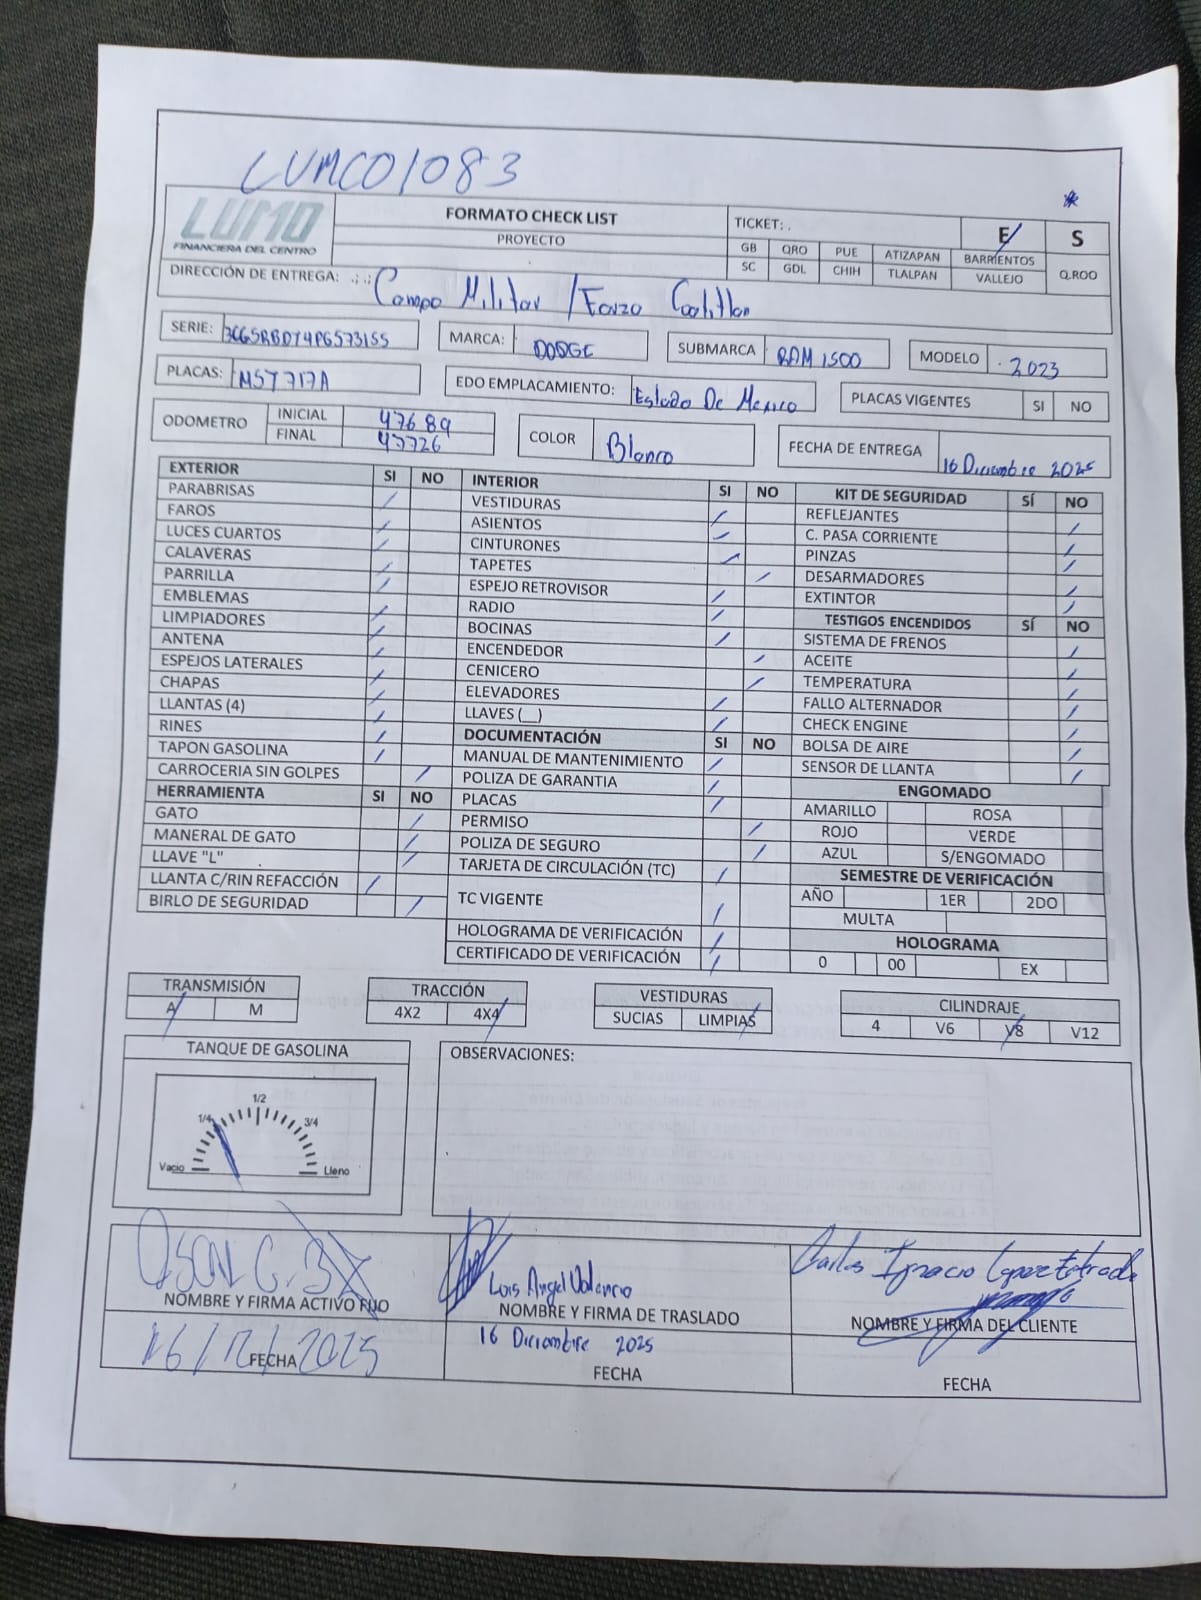 LUMC01083
*
LUMO
FINANCIERA DEL CENTRO
FORMATO CHECK LIST
PROYECTO
TICKET: .
E S
GB QRO PUE ATIZAPAN BARRIENTOS
SC GDL CHIH TLALPAN VALLEJO Q.ROO
DIRECCIÓN DE ENTREGA: .;.; Campo Militar /
SERIE: 3C6SRBDT4PG573155 MARCA: DODGE SUBMARCA RAM 1500 MODELO . 2023
PLACAS: EDO EMPLACAMIENTO: Estado De Mexico PLACAS VIGENTES SI NO
ODOMETRO INICIAL 47689
FINAL 47726
COLOR Blanco FECHA DE ENTREGA 16 Diciembre 2025
EXTERIOR SI NO INTERIOR SI NO KIT DE SEGURIDAD SÍ NO
PARABRISAS VESTIDURAS REFLEJANTES
FAROS ASIENTOS C. PASA CORRIENTE
LUCES CUARTOS CINTURONES PINZAS
CALAVERAS TAPETES DESARMADORES
PARRILLA ESPEJO RETROVISOR EXTINTOR
EMBLEMAS RADIO TESTIGOS ENCENDIDOS SÍ NO
LIMPIADORES BOCINAS SISTEMA DE FRENOS
ANTENA ENCENDEDOR ACEITE
ESPEJOS LATERALES CENICERO TEMPERATURA
CHAPAS ELEVADORES FALLO ALTERNADOR
LLANTAS (4) LLAVES (__) CHECK ENGINE
RINES DOCUMENTACIÓN SI NO BOLSA DE AIRE
TAPON GASOLINA MANUAL DE MANTENIMIENTO SENSOR DE LLANTA
CARROCERIA SIN GOLPES POLIZA DE GARANTIA ENGOMADO
HERRAMIENTA SI NO PLACAS AMARILLO ROSA
GATO PERMISO ROJO VERDE
MANERAL DE GATO POLIZA DE SEGURO AZUL S/ENGOMADO
LLAVE "L" TARJETA DE CIRCULACIÓN (TC) SEMESTRE DE VERIFICACIÓN
LLANTA C/RIN REFACCIÓN TC VIGENTE AÑO 1ER 2DO
BIRLO DE SEGURIDAD MULTA
HOLOGRAMA DE VERIFICACIÓN HOLOGRAMA
CERTIFICADO DE VERIFICACIÓN 0 00 EX
TRANSMISIÓN TRACCIÓN VESTIDURAS CILINDRAJE
A M 4X2 4X4 SUCIAS LIMPIAS 4 V6 V8 V12
TANQUE DE GASOLINA OBSERVACIONES:
1/2
1/4 3/4
Vacio Lleno
Luis Angel Valencia Carlos Ignacio Lopez Estrada
NOMBRE Y FIRMA ACTIVO FIJO NOMBRE Y FIRMA DE TRASLADO NOMBRE Y FIRMA DEL CLIENTE
16/12/2025 16 Diciembre 2025
FECHA FECHA FECHA